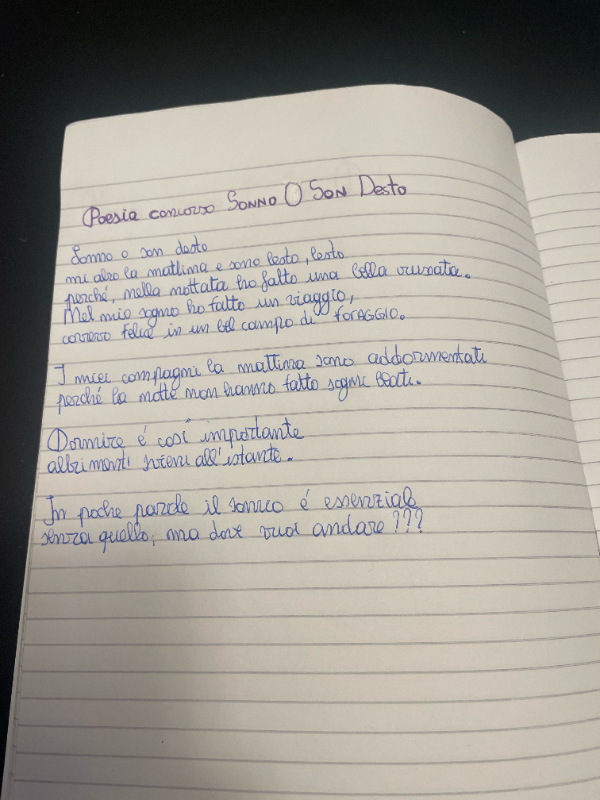 Poesia concorso SONNO O SON DESTO
Sonno o son desto
mi alzo la mattina e sono lesto, lesto
perché, nella nottata ho fatto una bella russata.
Nel mio sogno ho fatto un viaggio,
correvo felice in un bel campo di FORAGGIO.
I miei compagni la mattina sono addormentati
perché la notte non hanno fatto sogni beati.
Dormire é così importante
altrimenti svieni all'istante.
In poche parole il sonno é essenziale
senza quello, ma dove vuoi andare???